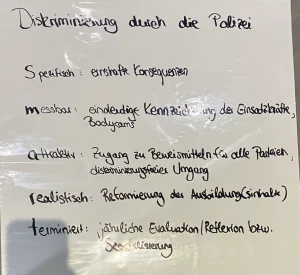 Diskriminierung durch die Polizei
Spezifisch: ernsthafte Konsequenzen
messbar: eindeutige Kennzeichnung der Einsatzkräfte,
Bodycams
attraktiv: Zugang zu Beweismitteln für alle Parteien,
diskriminierungsfreier Umgang
realistisch: Reformierung der Ausbildung(sinhalte)
terminiert: jährliche Evaluation/Reflexion bzw.
Sensibilisierung